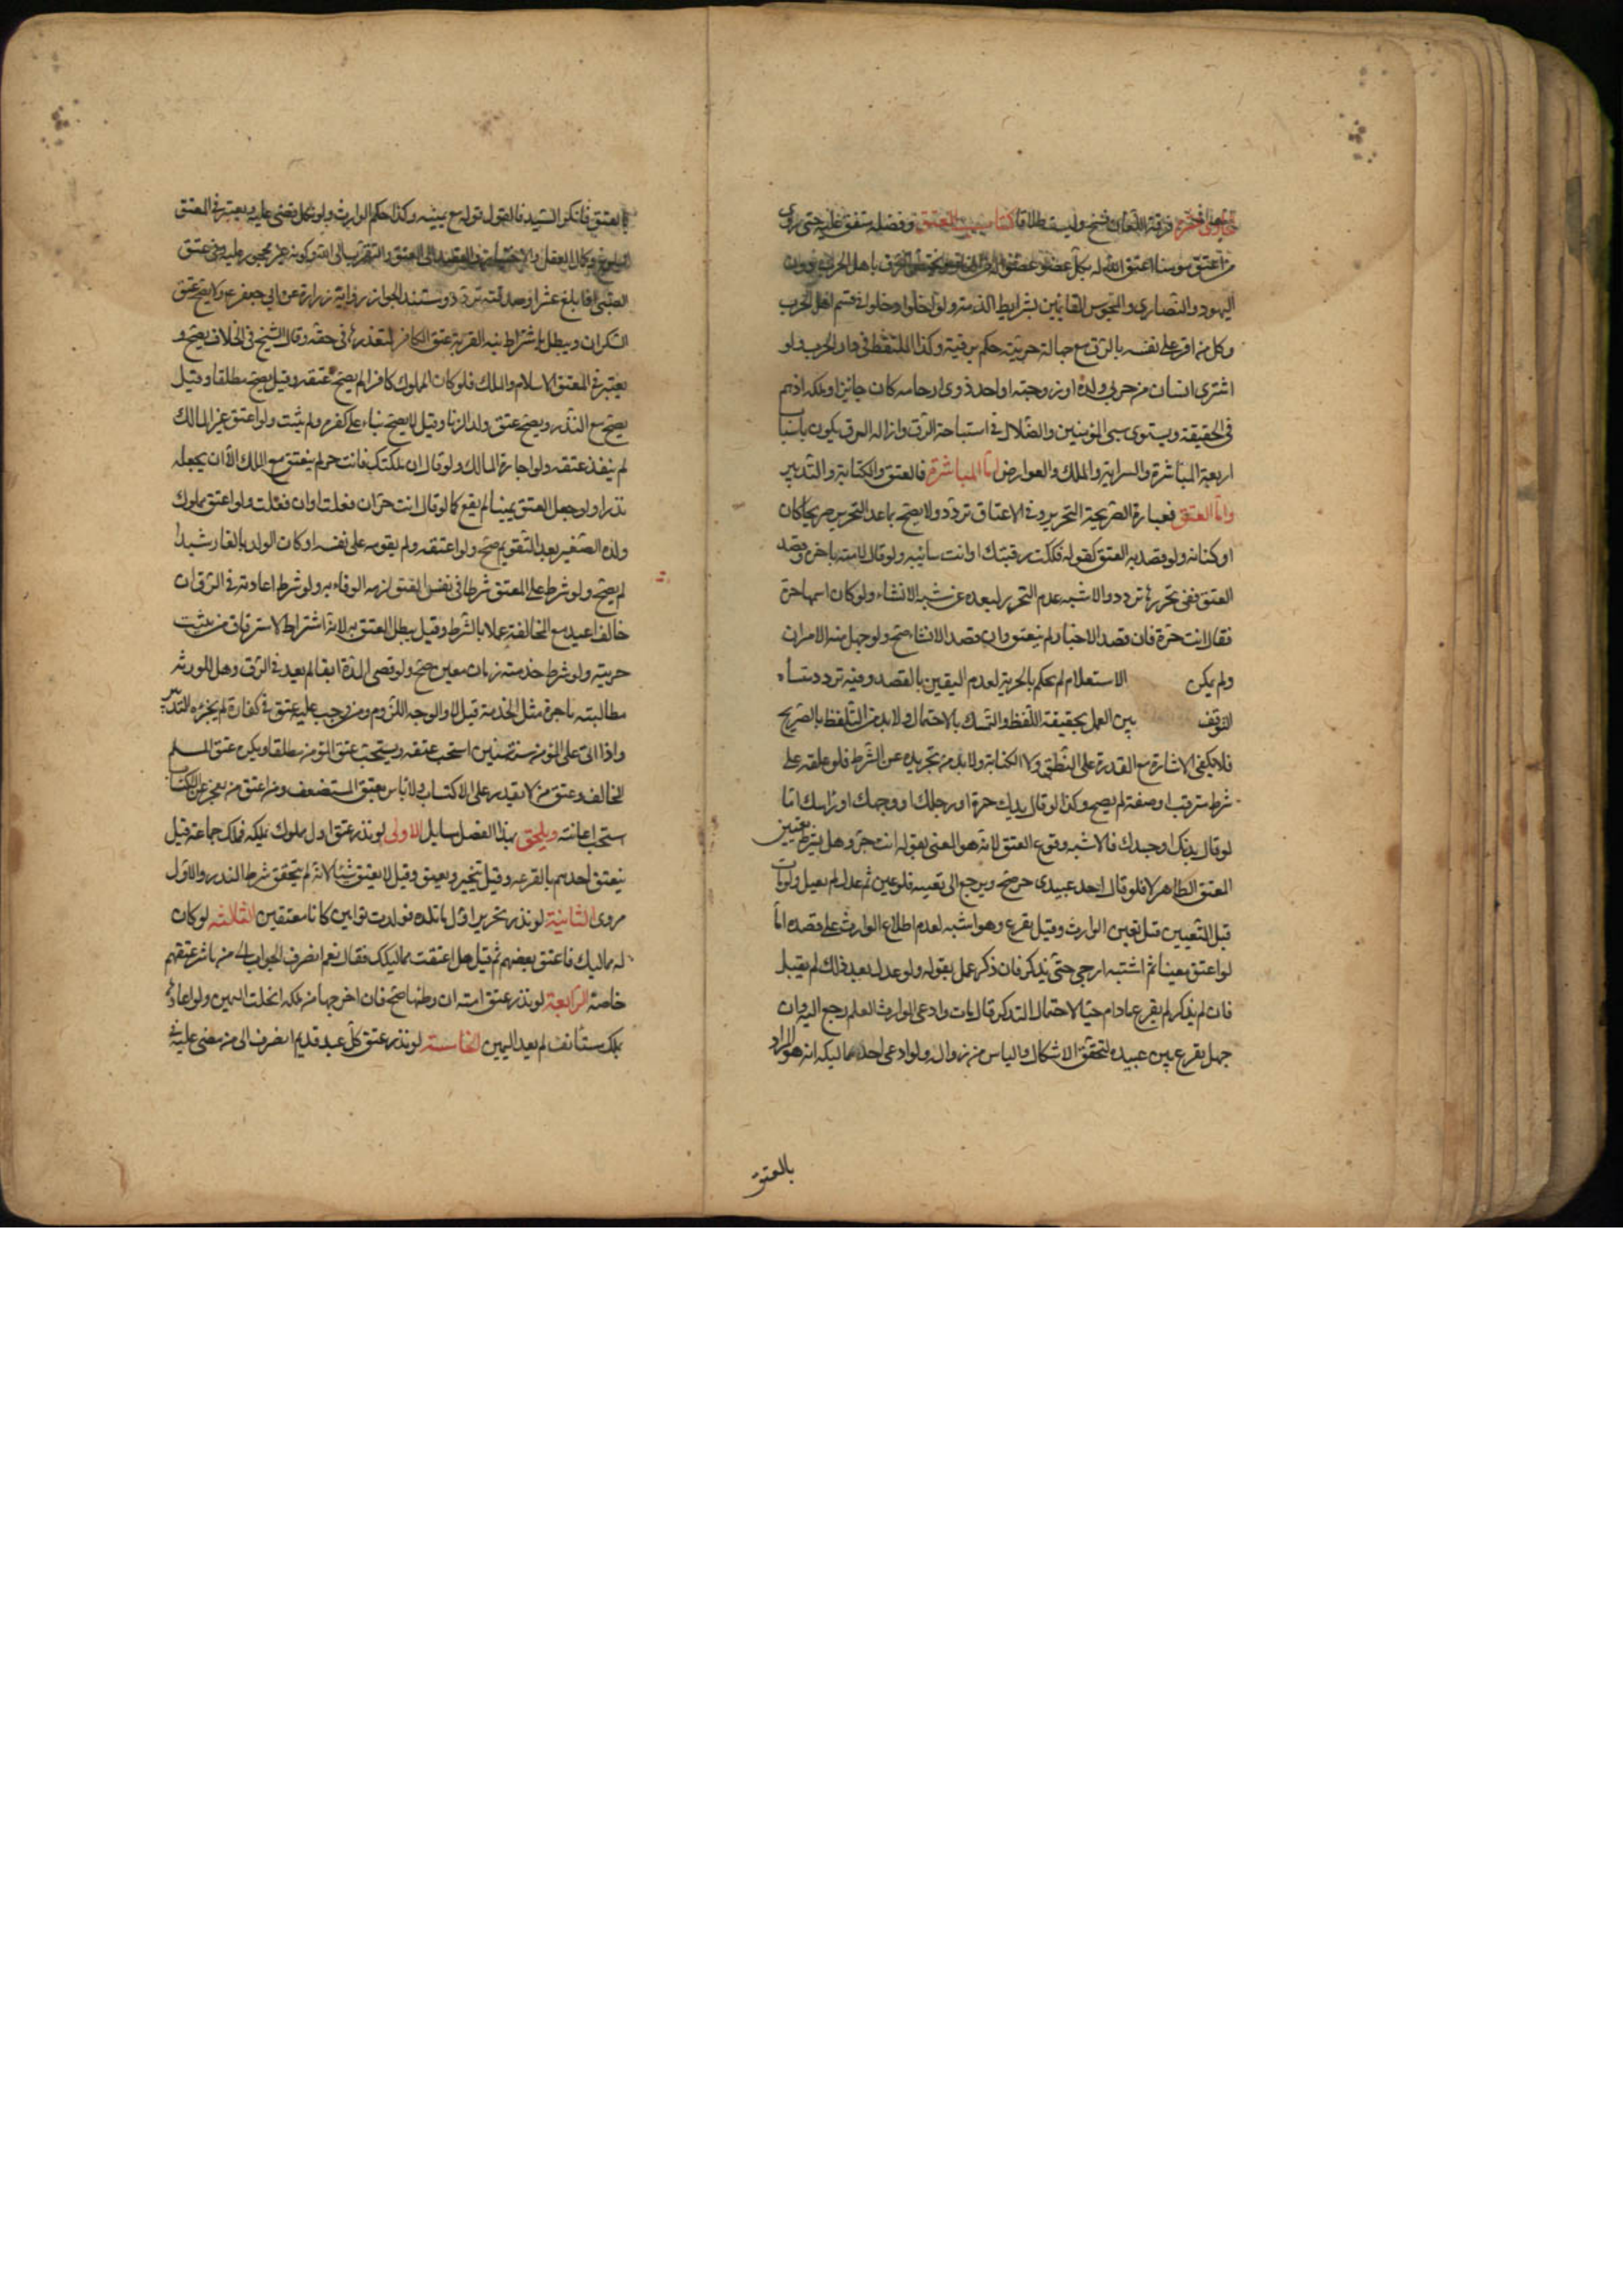 فرقة اللعان فسخ وليست طلاقا كتاب العتق وفضله متفق عليه حتى روى
من اعتق مومنا اعتق الله له بكل عضو عضوا باهل الحرب دون
اليهود والنصارى والمجوس القائمين بشرايط الذمة ولو اخلوا دخلوا فى قسم اهل الحرب
وكل من اقر على نفسه بالرق مع جهالة حريته حكم برقيته وكذا الملتقط فى دار الحرب ولو
اشترى انسان من حربى ولده او زوجته او احد ذوى ارحامه كان جايزا وملكه اذ هم
فى الحقيقة ويستوى سبى المؤمنين والضلال فى استباحة الرق وازالة الرق يكون باسباب
اربعة المباشرة والسراية والملك والعوارض اما المباشرة فالعتق والكتابة والتدبير
واما العتق فعبارة الصريحة التحرير وفى الاعتاق تردد ولا يصح بما عدا التحرير صريحا كان
او كناية ولو قصد به العتق كقوله فككت رقبتك او انت سائبة ولو قال لامته يا حرة وقصد
العتق ففى تحريرها تردد والاشبه عدم التحرير لبعده عن شبه الانشاء ولو كان اسمها حرة
فقال انت حرة فان قصد الاخبار لم ينعتق وان قصد الانشاء صح ولو جهل منه الامران
ولم يكن الاستعلام لم يحكم بالحرية لعدم اليقين بالقصد وفيه تردد منشأه
التوقف بين العمل بحقيقة اللفظ والتمسك بالاحتمال ولا بد من التلفظ بالصريح
فلا يكفى الاشارة مع القدرة على النطق ولا الكتابة ولا بد من تجريده عن الشرط فلو علقه على
شرط مترقب او صفة لم يصح وكذا لو قال يدك حرة او رجلك او وجهك او راسك اما
لو قال بدنك او جسدك فالاشبه وقوع العتق لانه هو المعنى بقوله انت حر وهل يشترط تعيين
المعتق الظاهر لا فلو قال احد عبيدى حر صح ويرجع الى تعيينه فلو عين ثم عدل لم يقبل ولو مات
قبل التعيين قيل يعين الوارث وقيل يقرع وهو اشبه لعدم اطلاع الوارث على قصده اما
لو اعتق معينا ثم اشتبه ارجى حتى يذكر فان ذكر عمل بقوله ولو عدل بعد ذلك لم يقبل
فان لم يذكر لم يقرع ما دام حيا لاحتمال التذكر فان مات وادعى الوارث العلم رجع اليه وان
جهل يقرع بين عبيده لتحقق الاشكال والياس من زواله ولو ادعى احد مماليكه انه هو المراد
بالعتق
بالعتق فانكر السيد فالقول قوله مع يمينه وكذا حكم الوارث ولو نكل قضى عليه ويعتبر فى المعتق
البلوغ وكمال العقل والاختيار والقصد الى العتق والتقرب الى الله وكونه غير محجور عليه وفى عتق
الصبى اذا بلغ عشرا وصدقته تردد ومستند الجواز رواية زرارة عن ابى جعفر ع ولا يصح عتق
السكران ويبطل باشتراط نية القربة عتق الكافر لتعذرها فى حقه وقال الشيخ فى الخلاف يصح و
يعتبر فى المعتق الاسلام والملك فلو كان المملوك كافرا لم يصح عتقه وقيل يصح مطلقا وقيل
يصح مع النذر ويصح عتق ولد الزنا وقيل لا يصح بناء على كفره ولم يثبت ولو اعتق غير المالك
لم ينفذ عتقه ولو اجازة المالك ولو قال ان ملكتك فانت حر لم ينعتق مع الملك الا ان يجعله
نذرا ولو جعل العتق يمينا لم يقع كما لو قال انت حر ان فعلت او ان فعلت ولو اعتق مملوك
ولده الصغير بعد التقويم صح ولو اعتقه ولم يقومه على نفسه او كان الولد بالغا رشيدا
لم يصح ولو شرط على المعتق شرطا فى نفس العتق لزمه الوفاء به ولو شرط اعادته فى الرق ان
خالف اعيد مع المخالفة عملا بالشرط وقيل يبطل العتق لانه اشتراط لاسترقاق من يثبت
حريته ولو شرط خدمته زمان معين صح ولو قضى المدة ابقا لم يعد فى الرق وهل للورثة
مطالبته باجرة مثل الخدمة قيل لا والوجه اللزوم ومن وجب عليه عتق فى كفارة لم يجزه التدبير
واذا اتى على المؤمن سبع سنين استحب عتقه ويستحب عتق المؤمن مطلقا ويكره عتق المسلم
المخالف وعتق من لا يقدر على الاكتساب ولا باس بعتق المستضعف ومن اعتق من يعجز عن الاكتساب
استحب اعانته ويلحق بهذا الفصل مسايل الاولى لو نذر عتق اول مملوك يملكه فملك جماعة قيل
ينعتق احدهم بالقرعة وقيل يتخير ويعتق وقيل لا يعتق شيئا لانه لم يتحقق شرط النذر والاول
مروى الثانية لو نذر تحرير اول ما تلده فولدت توامين كانا معتقين الثالثة لو كان
له مماليك فاعتق بعضهم ثم قيل هل اعتقت مماليكك فقال نعم انصرف الجواب الى من باشر عتقهم
خاصة الرابعة لو نذر عتق امته ان وطئها صح فان اخرجها من ملكه انحلت اليمين ولو اعادها
بملك مستانف لم يعد اليمين الخامسة لو نذر عتق كل عبد قديم انصرف الى من مضى عليه فى